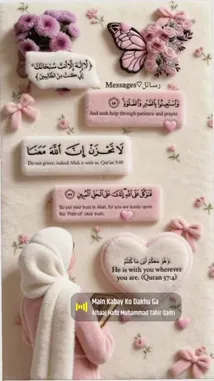 ﴿لَا إِلَٰهَ إِلَّا أَنتَ سُبْحَانَكَ
إِنِّي كُنتُ مِنَ الظَّالِمِينَ﴾
Messages♡رسائل
وَاسْتَعِينُوا بِالصَّبْرِ وَالصَّلَاةِ
And seek help through patience and prayer
لَا تَحْزَنْ إِنَّ اللَّهَ مَعَنَا
Do not grieve; indeed Allah is with us, Qur'an 9:40
فَتَوَكَّلْ عَلَى اللَّهِ إِنَّكَ عَلَى الْحَقِّ الْمُبِينِ
So put your trust in Allah, for you are surely upon
the 'Path of' clear truth.
وَهُوَ مَعَكُمْ أَيْنَ مَا كُنتُمْ
He is with you wherever
you are. (Quran 57:4)
Main Kabay Ko Dakhu Ga
Alhaaj Hafiz Muhammad Tahir Qadri